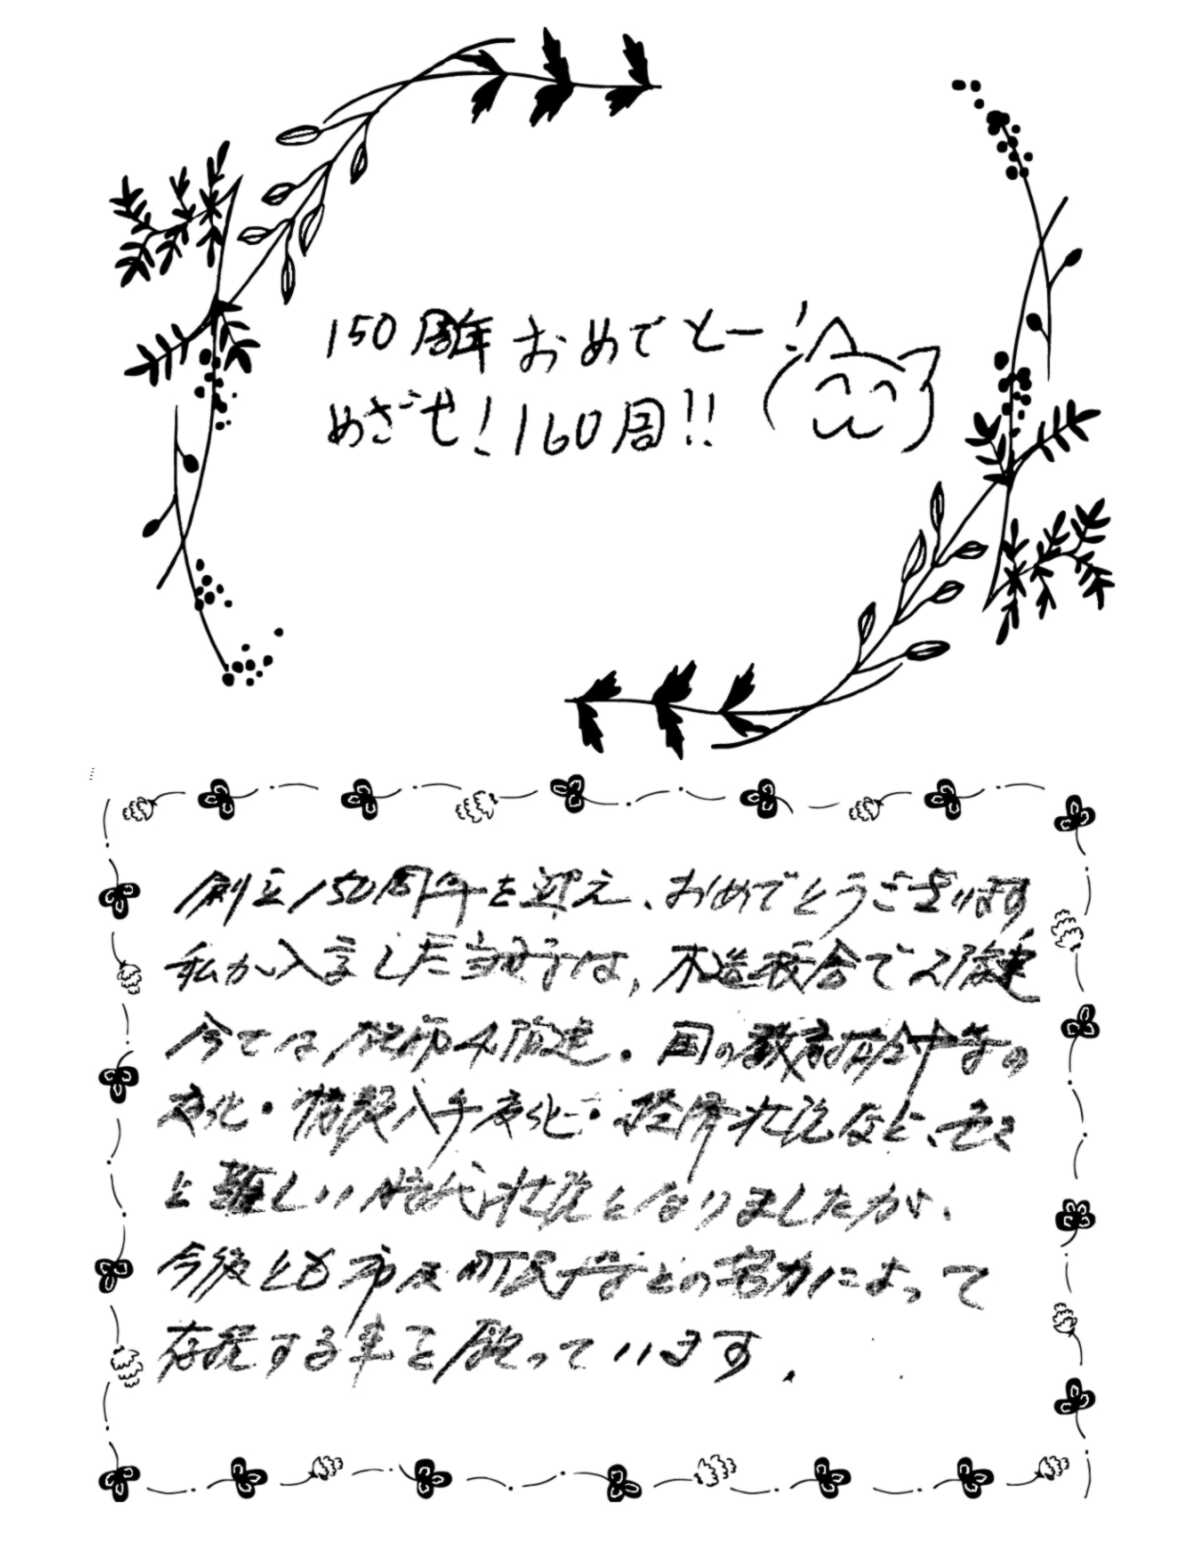 150周年おめでとー!
めざせ!160周!!
創立150周年を迎え、おめでとうございます
私が入学した当時は、木造校舎で2階建
今では鉄筋4階建。国の教育方針等の
変化・情報八千変化・経済状況など、色々
と難しい時代状況となりましたが、
今後とも市及町民等との努力によって
存続する事を願っています。